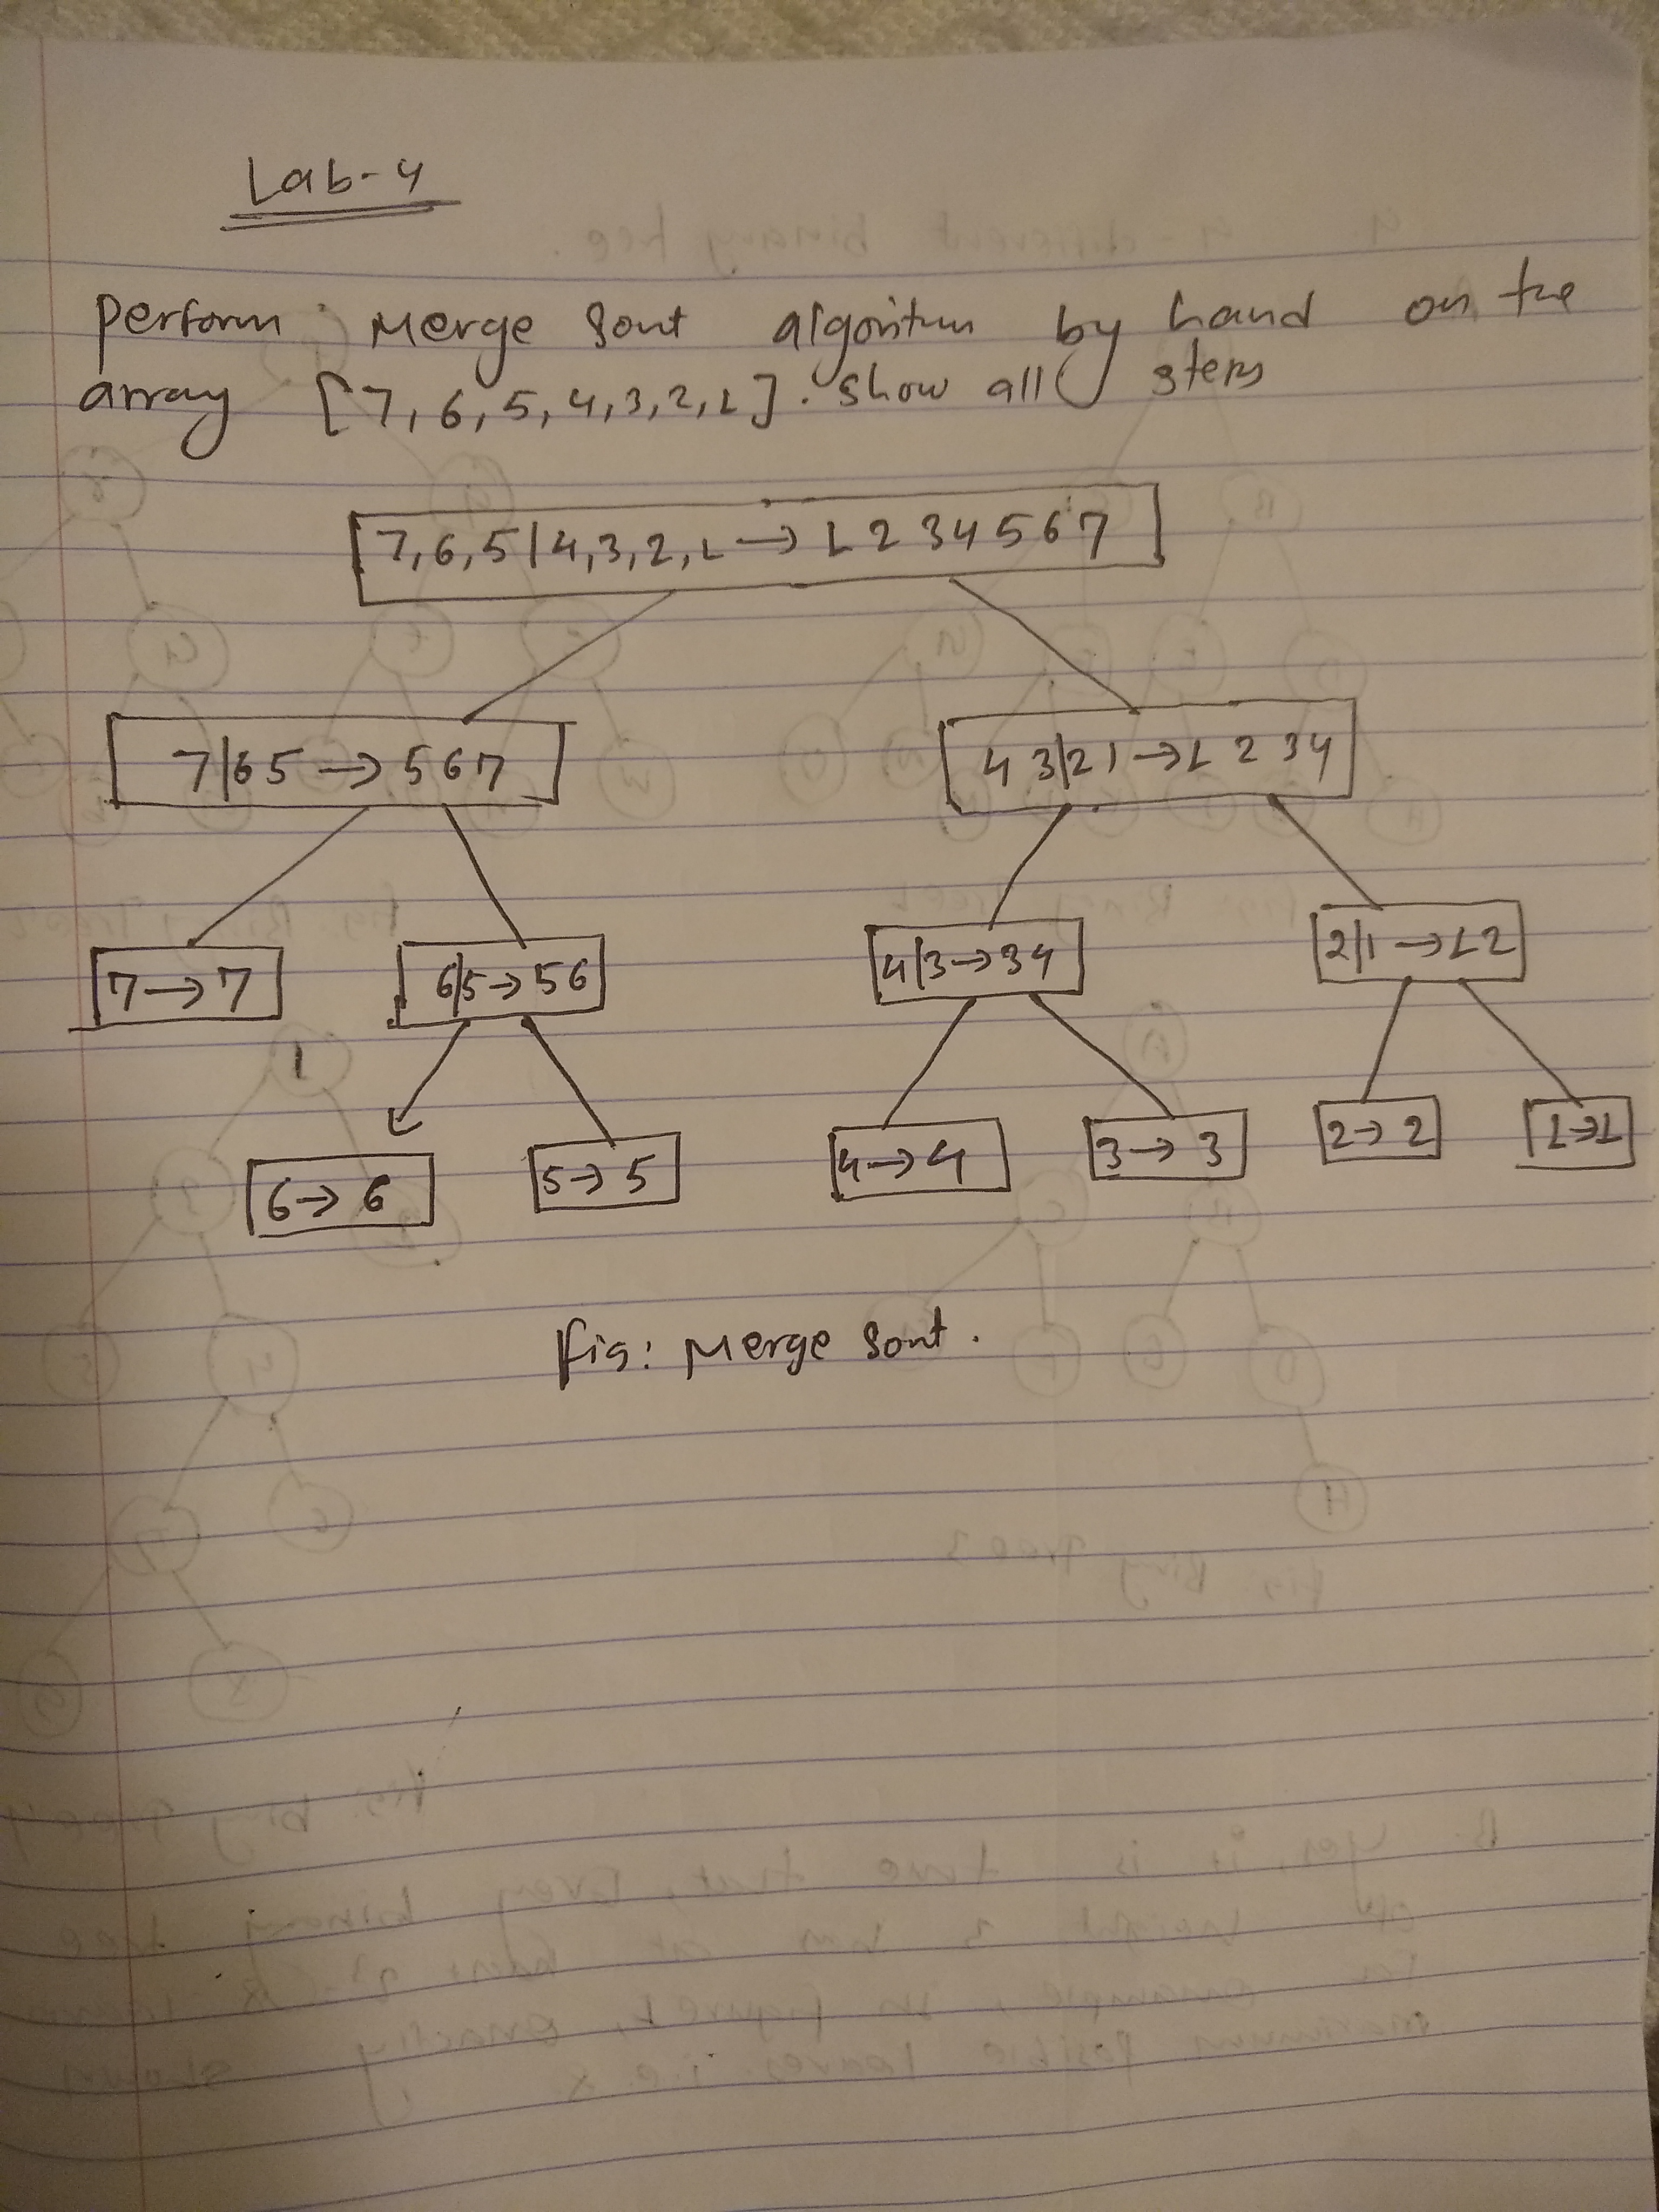 Lab-4
perform Merge Sort algorithm by hand on the
array [7, 6, 5, 4, 3, 2, 1]. Show all steps
7, 6, 5 | 4, 3, 2, 1 → 1 2 3 4 5 6 7
7 | 6 5 → 5 6 7
4 3 | 2 1 → 1 2 3 4
7 → 7
6 | 5 → 5 6
4 | 3 → 3 4
2 | 1 → 1 2
6 → 6
5 → 5
4 → 4
3 → 3
2 → 2
1 → 1
fig: Merge Sort.